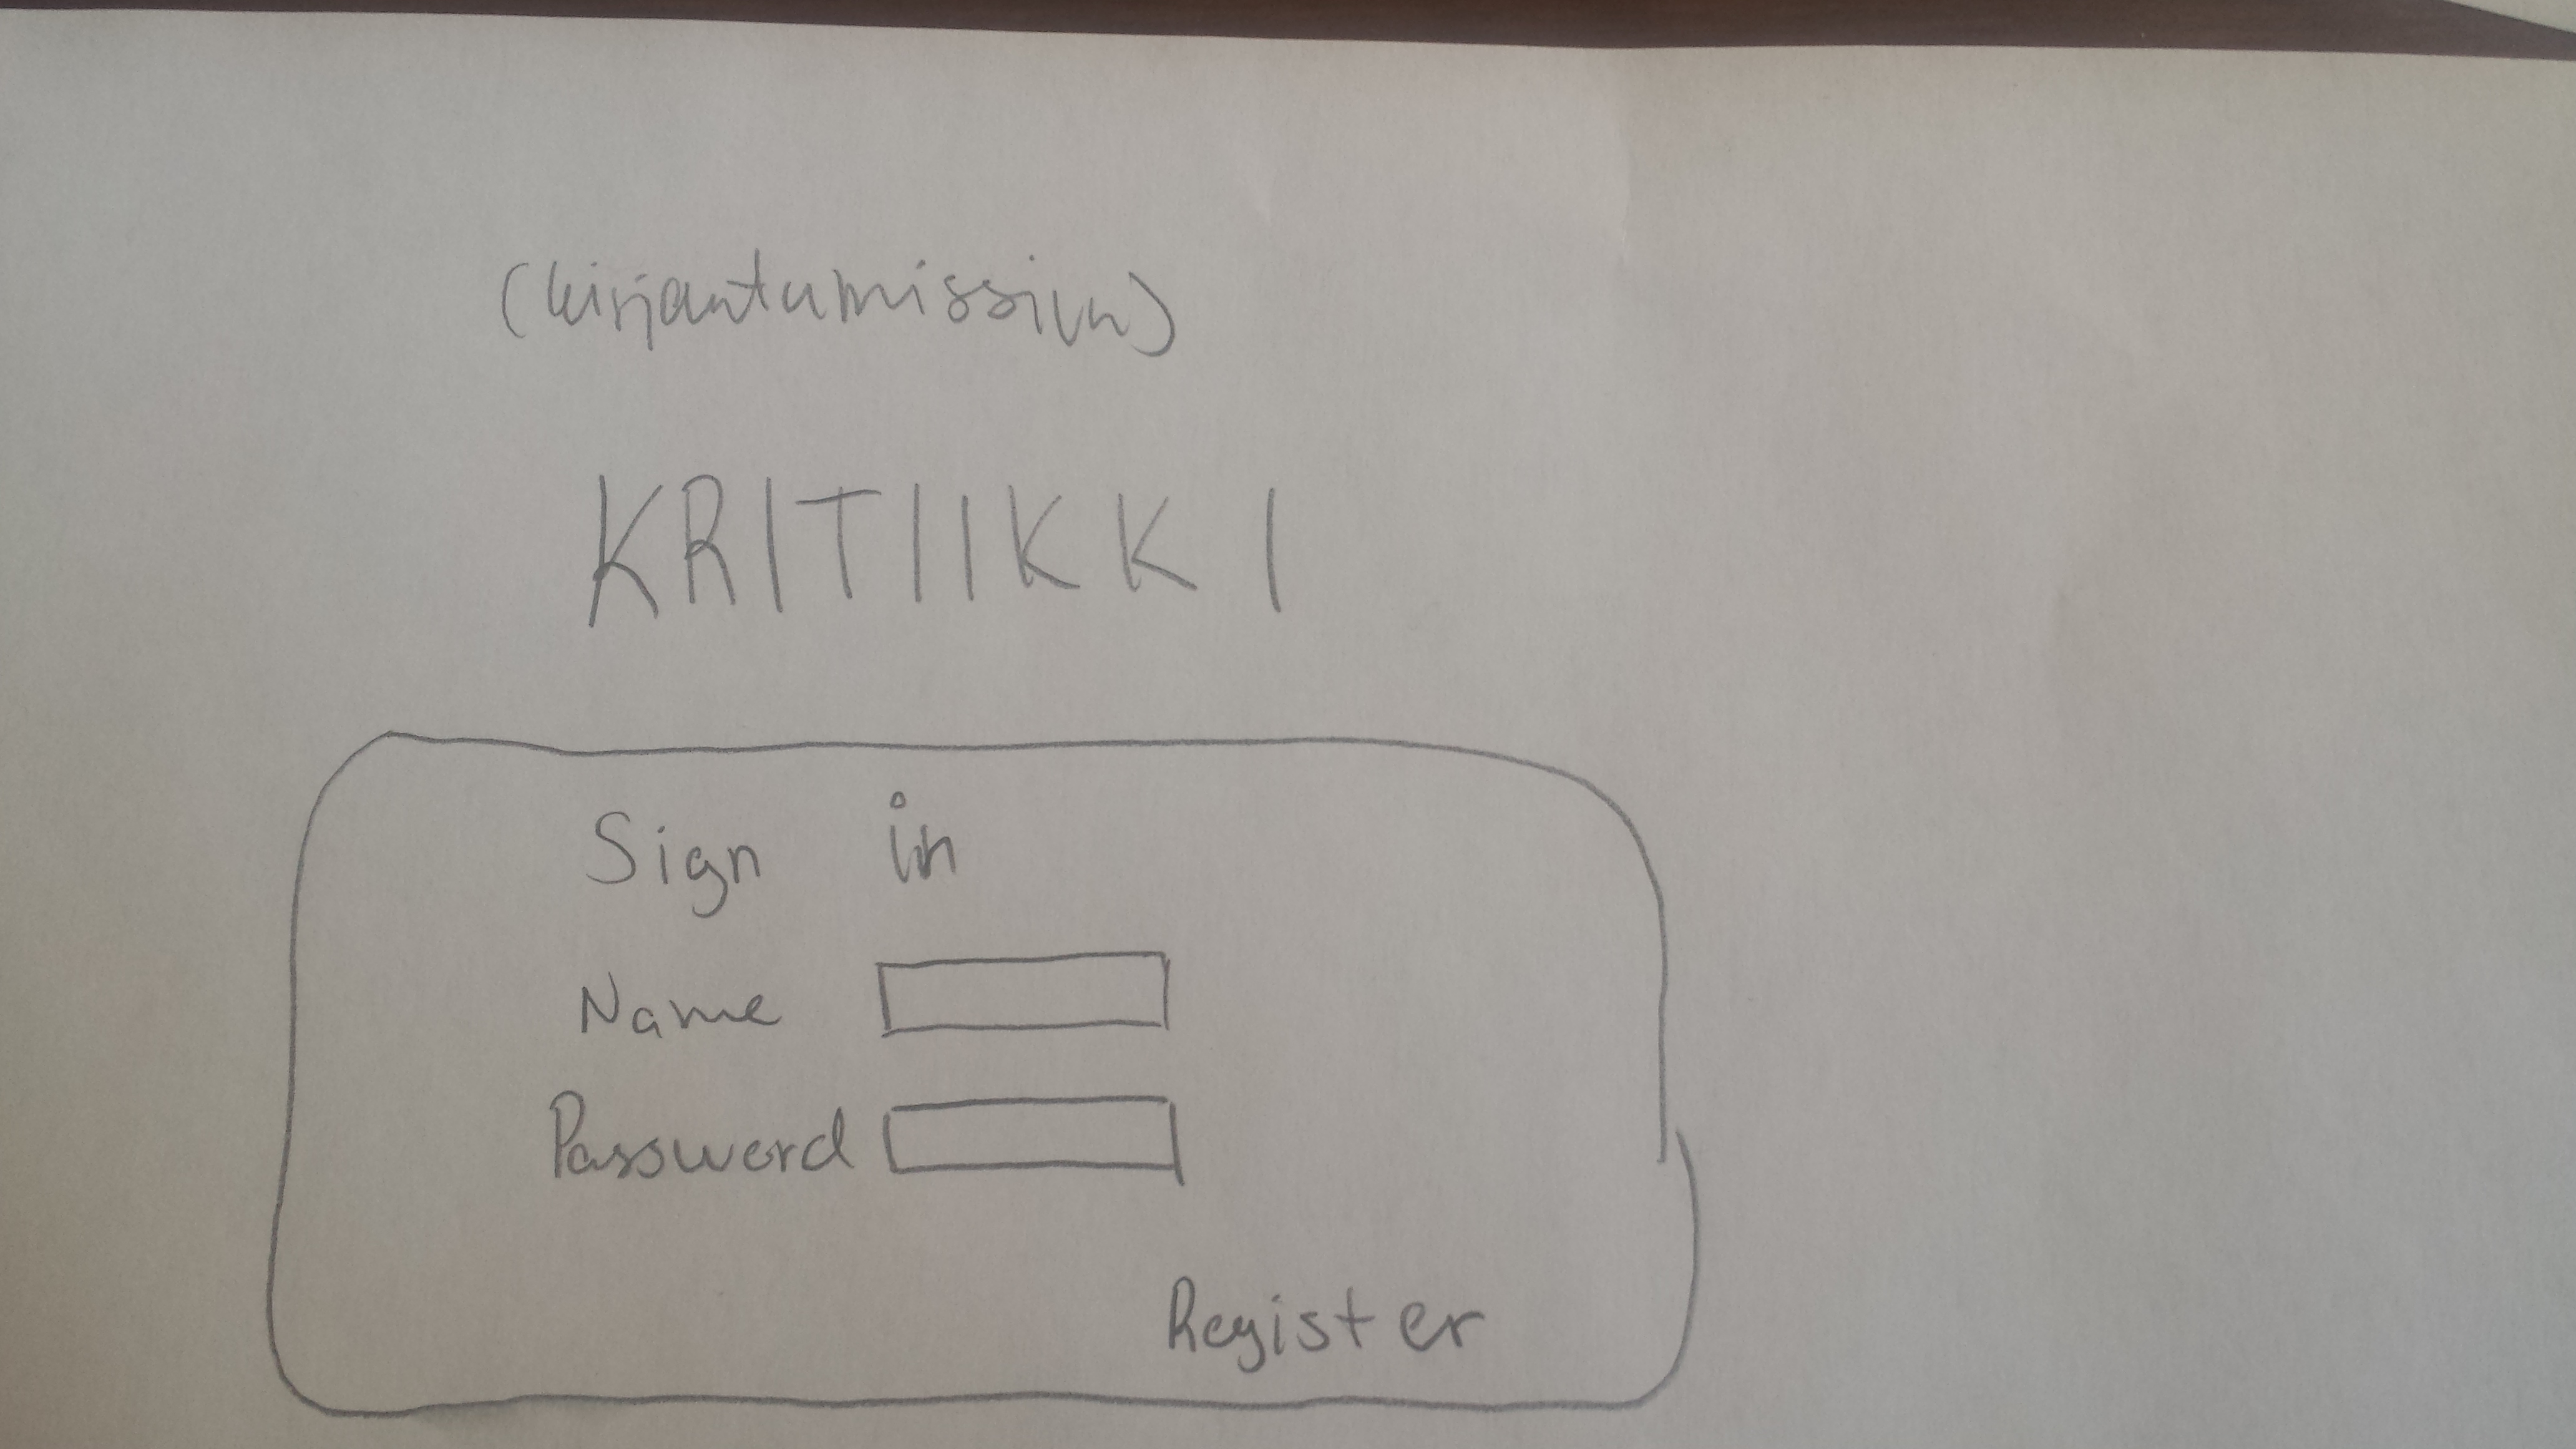 (kirjautumissivu)
KRITIIKKI
Sign in
Name
Password
Register